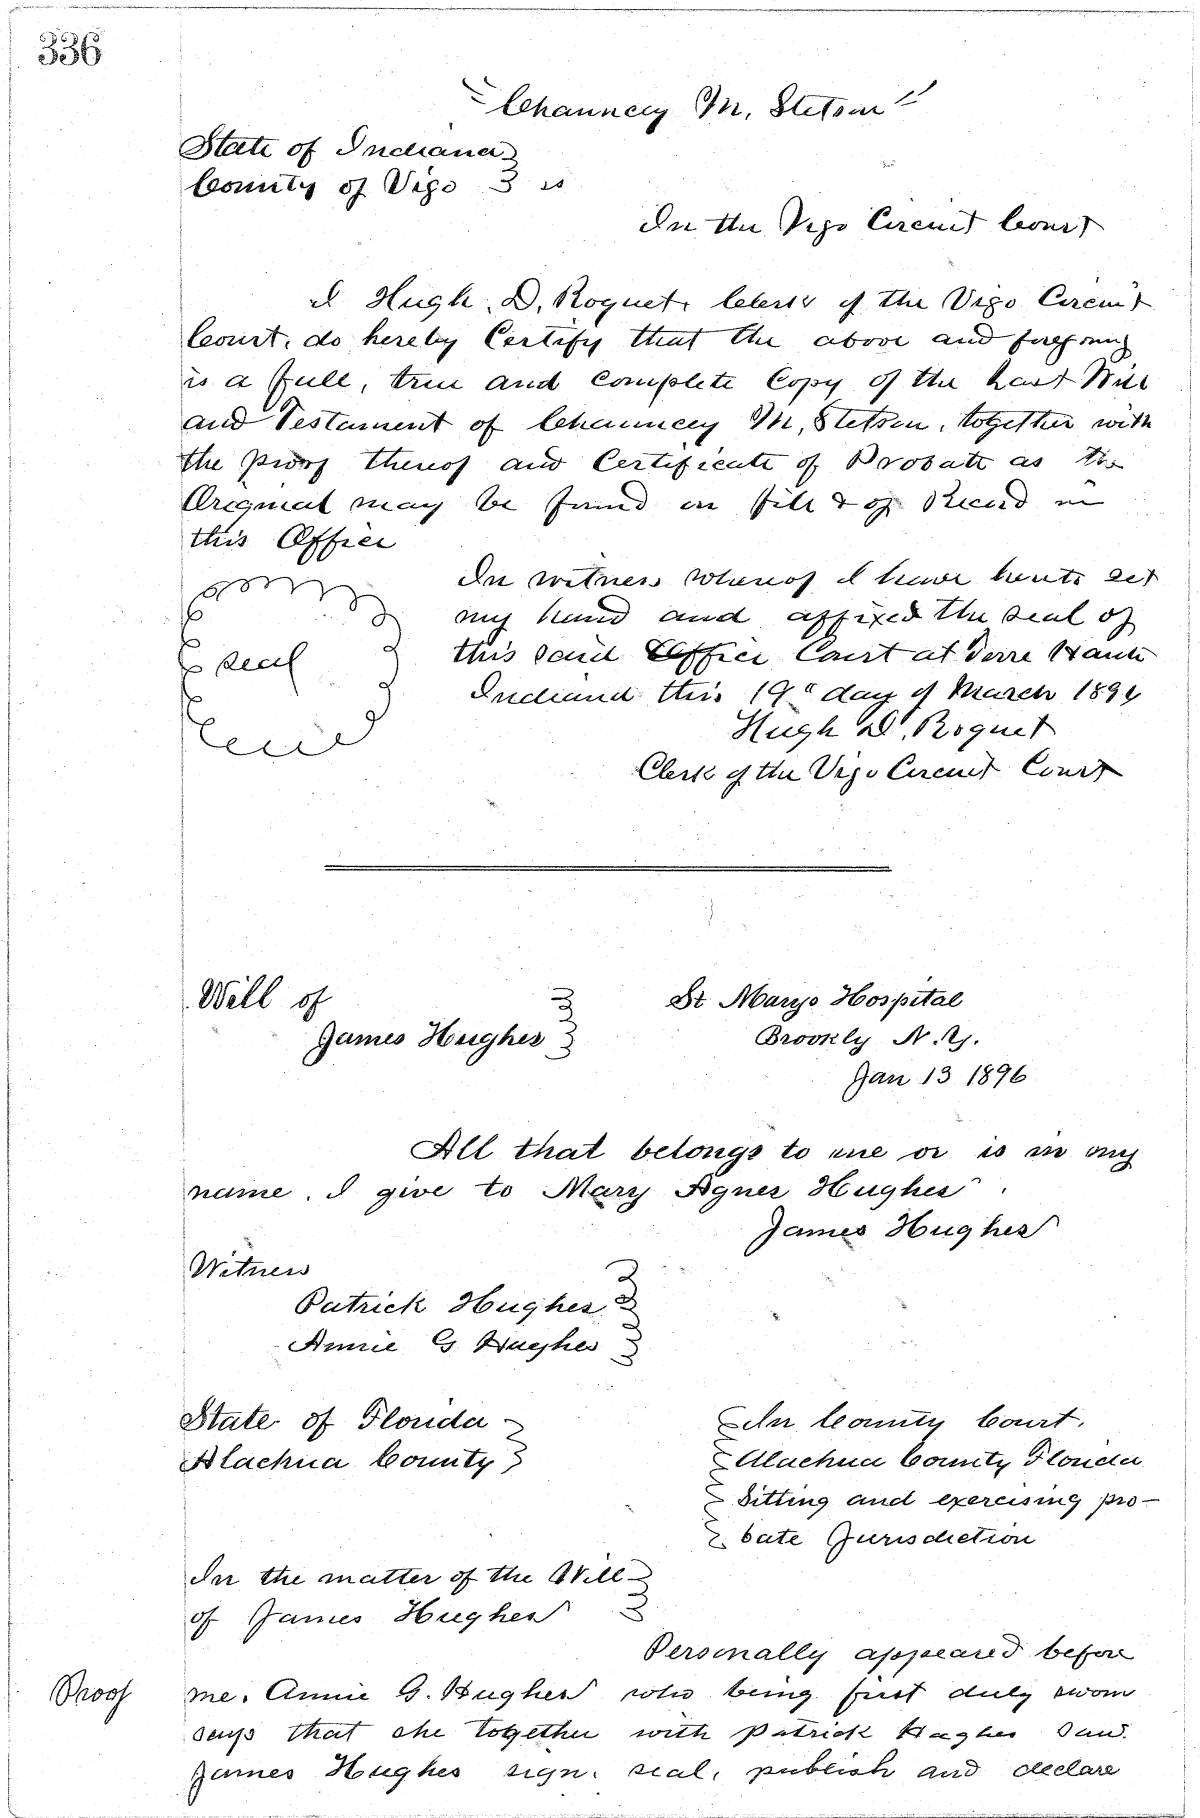 336
"Chauncey M. Stetson"
State of Indiana
County of Vigo ss
In the Vigo Circuit Court
I Hugh D. Roquet, Clerk of the Vigo Circuit
Court, do hereby Certify that the above and foregoing
is a full, true and complete Copy of the Last Will
and Testament of Chauncey M. Stetson, together with
the proof thereof and Certificate of Probate as the
Original may be found on file & of Record in
this Office
In witness whereof I have hereto set
my hand and affixed the seal of
seal
this said Office Court at Terre Haute
Indiana this 19" day of March 1896
Hugh D. Roquet
Clerk of the Vigo Circuit Court
Will of
James Hughes
St Marys Hospital
Brookly N.Y.
Jan 13 1896
All that belongs to me or is in my
name, I give to Mary Agnes Hughes.
James Hughes
Witness
Patrick Hughes
Annie G Hughes
State of Florida
Alachua County
In County Court,
Alachua County Florida
Sitting and exercising pro-
bate Jurisdiction
In the matter of the Will
of James Hughes
Personally appeared before
Proof
me, Annie G. Hughes who being first duly sworn
says that she together with Patrick Hughes saw
James Hughes sign, seal, publish and declare